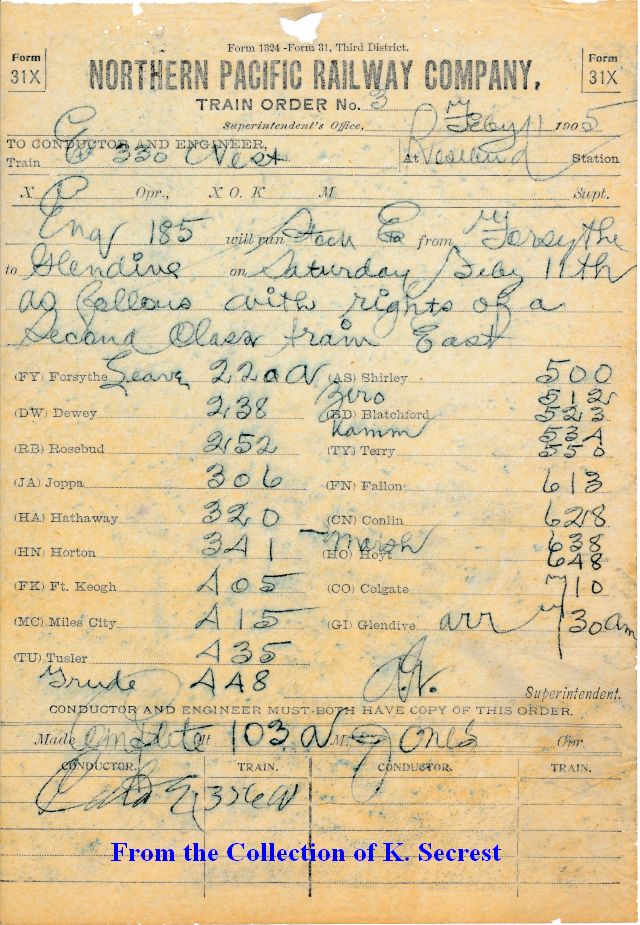 Form 1324 - Form 31, Third District.
Form 31X
Form 31X
NORTHERN PACIFIC RAILWAY COMPANY,
TRAIN ORDER No. 3
Superintendent's Office, Feby 11 1905
TO CONDUCTOR AND ENGINEER,
Train E 330 West At Rosebud Station
X Opr., X O. K M Supt.
Eng 185 will run from Forsythe
to Glendive on Saturday Feby 11th
as follows with rights of a
Second Class train East
(FY) Forsythe Leave 220 a (AS) Shirley 500
Zero 512
(DW) Dewey 238 (BD) Blatchford 523
Kamm 534
(RB) Rosebud 252 (TY) Terry 550
(JA) Joppa 306 (FN) Fallon 613
(HA) Hathaway 320 (CN) Conlin 628
Marsh 638
(HN) Horton 341 (HO) Hoyt 648
(FK) Ft. Keogh 405 (CO) Colgate 710
(MC) Miles City 415 (GI) Glendive arr 730 am
(TU) Tusler 435
448 Superintendent.
CONDUCTOR AND ENGINEER MUST BOTH HAVE COPY OF THIS ORDER.
Made Complete At 103 a M. Jones Opr
CONDUCTOR. TRAIN. CONDUCTOR. TRAIN.
From the Collection of K. Secrest